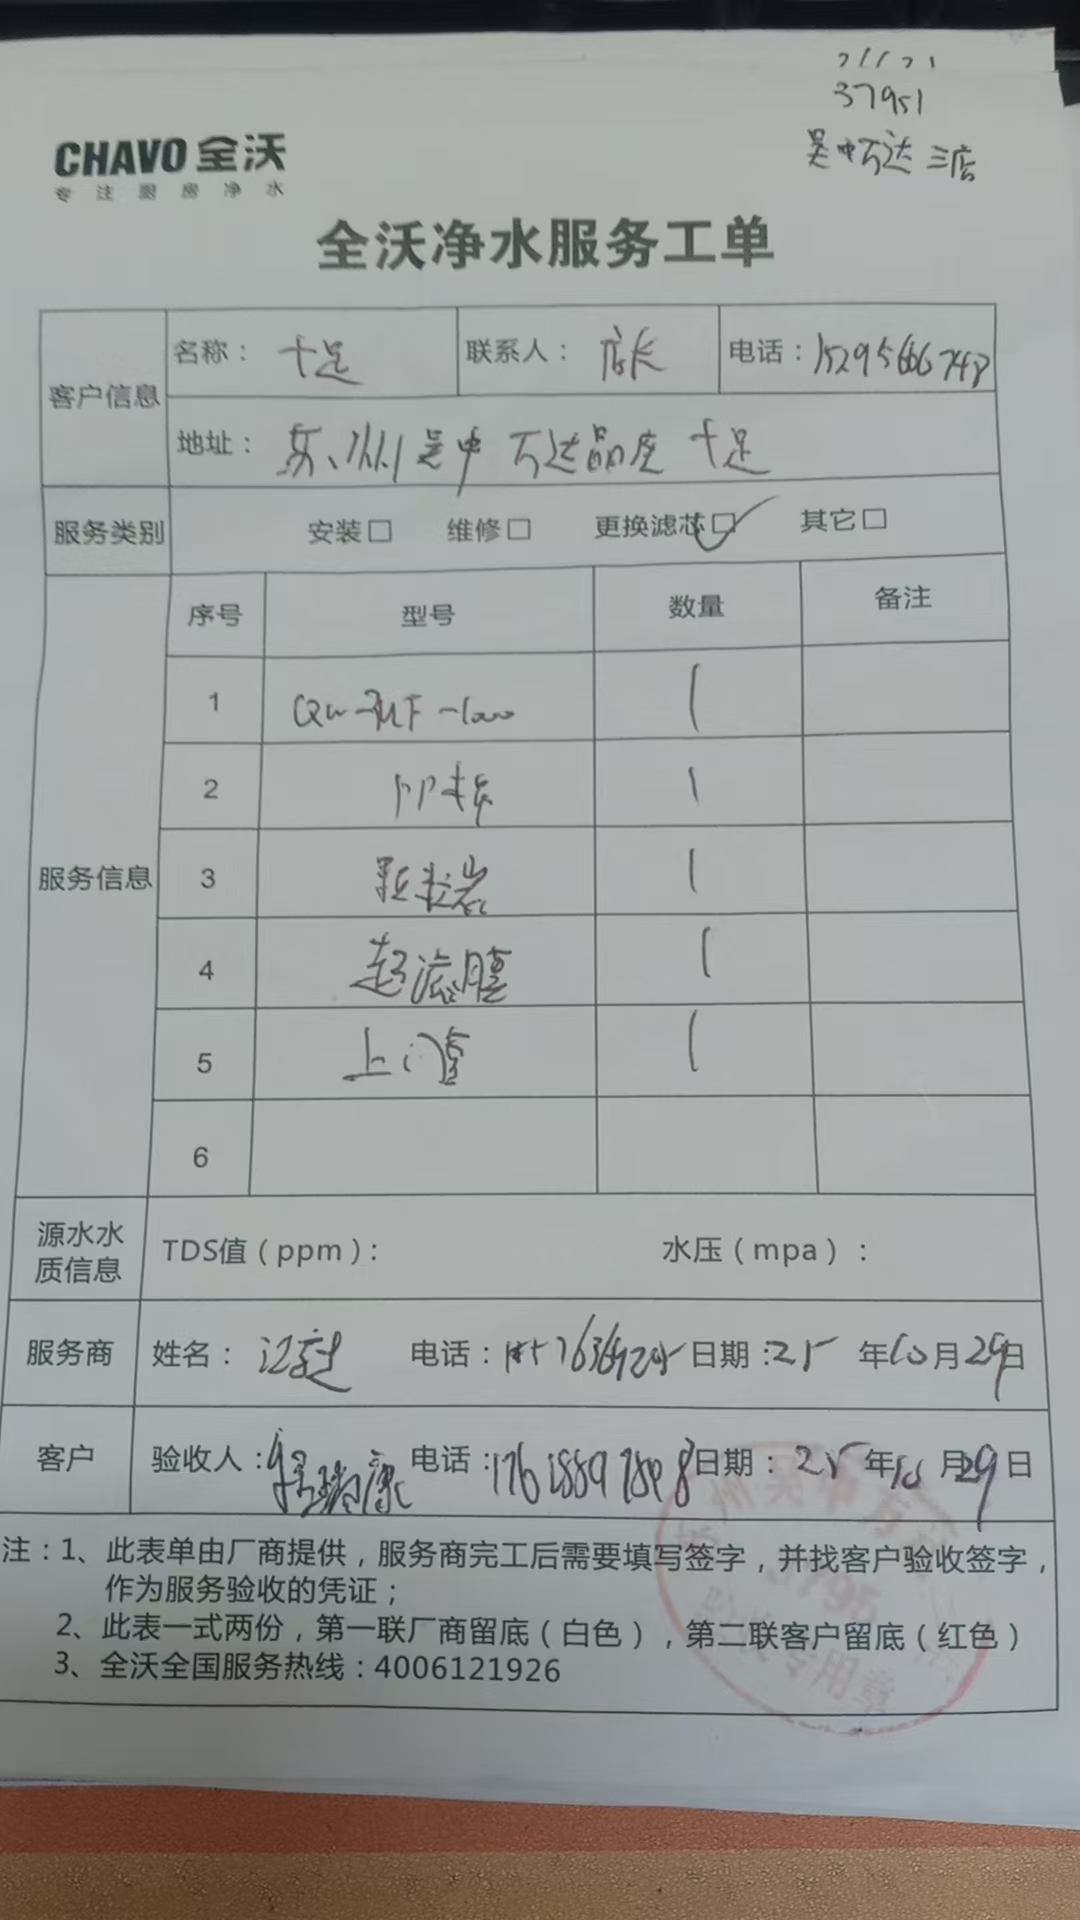 37951
吴中万达三店
CHAVO 全沃
专注厨房净水
全沃净水服务工单
客户信息
名称： 十足 联系人： 店长 电话：15295666748
地址： 苏州吴中万达品座 十足
服务类别 安装□ 维修□ 更换滤芯□✓ 其它□
服务信息
序号 型号 数量 备注
1 QW-RUF-1000 1
2 PP棉 1
3 颗粒炭 1
4 超滤膜 1
5 上门费 1
6
源水水质信息 TDS值（ppm）： 水压（mpa）：
服务商 姓名： 江 电话： 日期：25 年10月29日
客户 验收人： 瑞康 电话：17615897898 日期： 25年10月29日
注：1、此表单由厂商提供，服务商完工后需要填写签字，并找客户验收签字，
作为服务验收的凭证；
2、此表一式两份，第一联厂商留底（白色），第二联客户留底（红色）
3、全沃全国服务热线：4006121926
州吴中万
3795
验收专用章